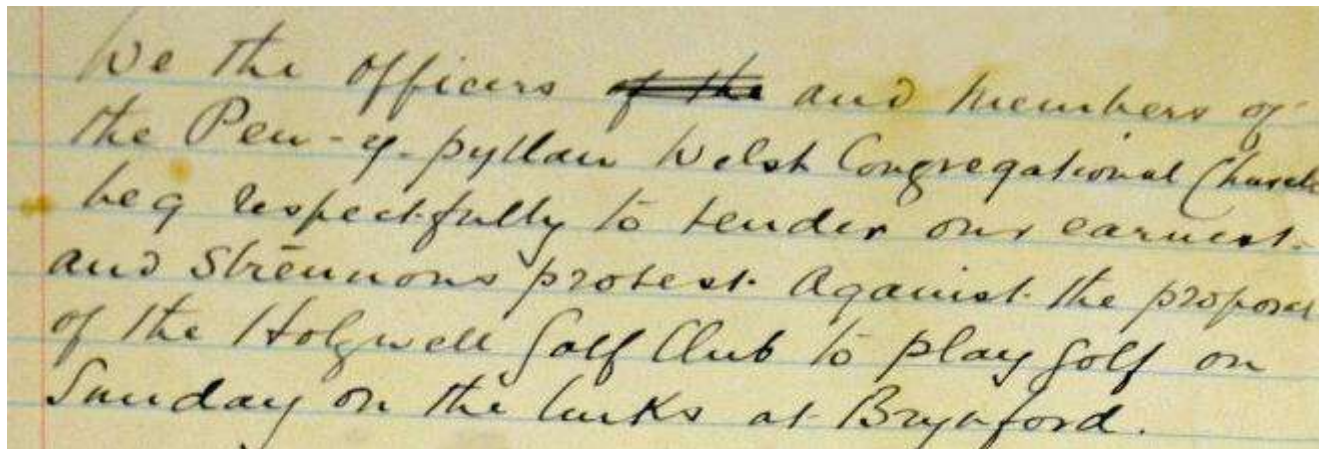 We the officers of the and members of
the Pen-y-pyllau Welsh Congregational Church
beg respectfully to tender our earnest
and strenuous protest against the proposal
of the Holywell Golf Club to play golf on
Sunday on the links at Brynford.